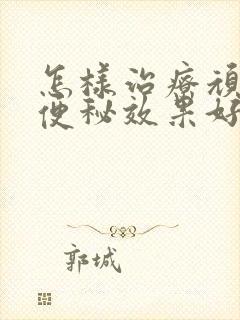 怎様治療頑
便秘效果好
郭城